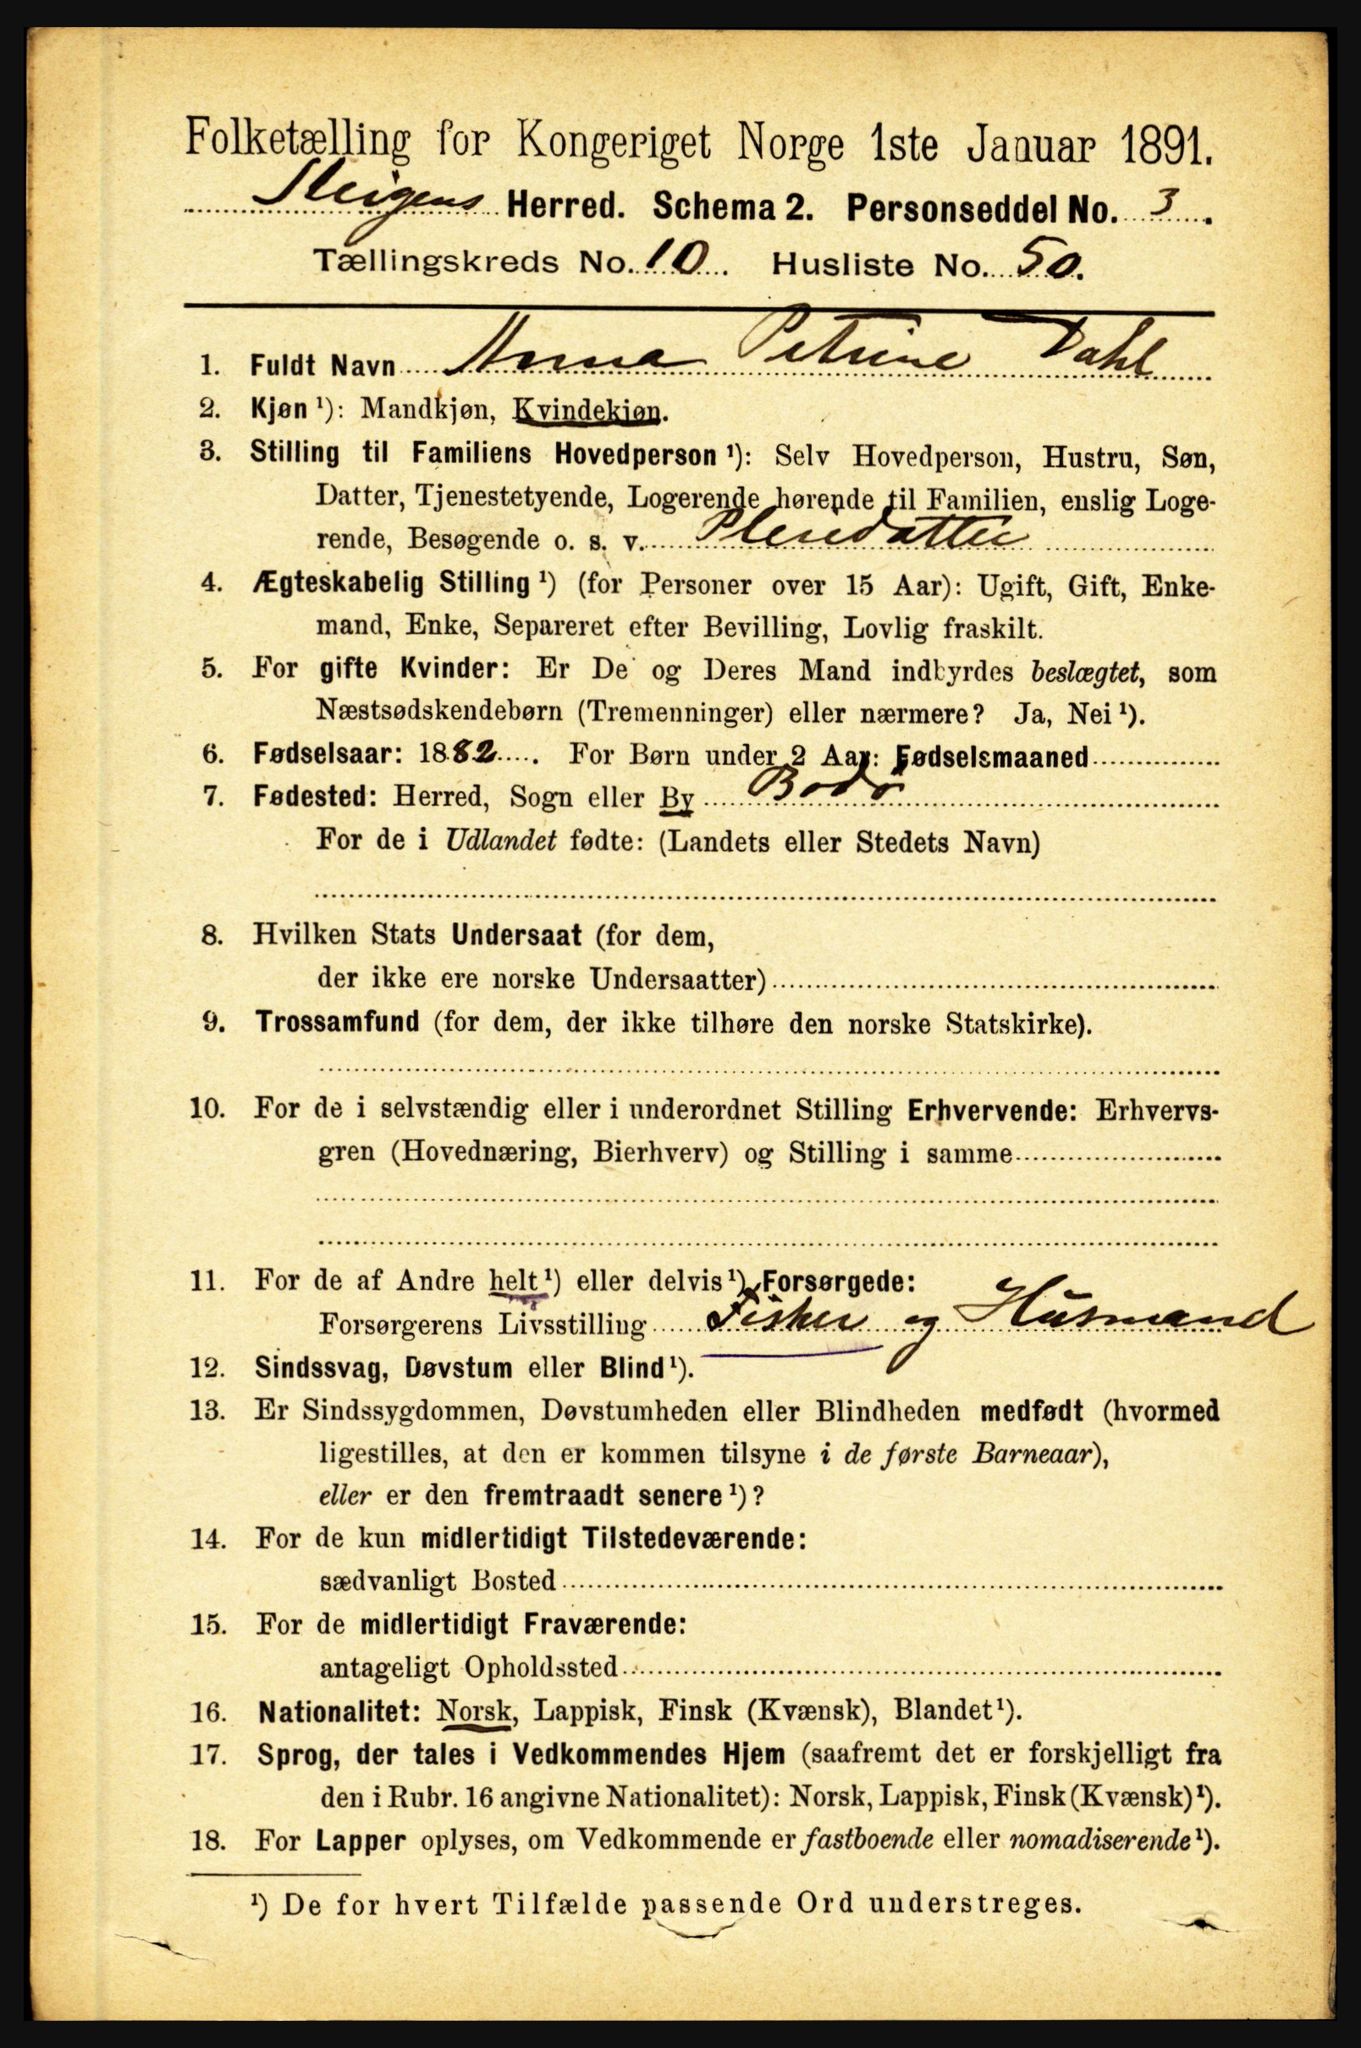 Folketælling for Kongeriget Norge 1ste Januar 1891.
Steigens Herred. Schema 2. Personseddel No. 3.
Tællingskreds No. 10. Husliste No. 50.
1. Fuldt Navn Anna Petrine Dahl
2. Kjøn ¹): Mandkjøn, Kvindekjøn.
3. Stilling til Familiens Hovedperson ¹): Selv Hovedperson, Hustru, Søn,
Datter, Tjenestetyende, Logerende hørende til Familien, enslig Loge-
rende, Besøgende o. s. v. Pleiedatter
4. Ægteskabelig Stilling ¹) (for Personer over 15 Aar): Ugift, Gift, Enke-
mand, Enke, Separeret efter Bevilling, Lovlig fraskilt.
5. For gifte Kvinder: Er De og Deres Mand indbyrdes beslægtet, som
Næstsødskendebørn (Tremenninger) eller nærmere? Ja, Nei ¹).
6. Fødselsaar: 1882. For Børn under 2 Aar: Fødselsmaaned
7. Fødested: Herred, Sogn eller By Bodø
For de i Udlandet fødte: (Landets eller Stedets Navn)
8. Hvilken Stats Undersaat (for dem,
der ikke ere norske Undersaatter)
9. Trossamfund (for dem, der ikke tilhøre den norske Statskirke).
10. For de i selvstændig eller i underordnet Stilling Erhvervende: Erhvervs-
gren (Hovednæring, Bierhverv) og Stilling i samme
11. For de af Andre helt ¹) eller delvis ¹) Forsørgede:
Forsørgerens Livsstilling Fisker og Husmand
12. Sindssvag, Døvstum eller Blind ¹).
13. Er Sindssygdommen, Døvstumheden eller Blindheden medfødt (hvormed
ligestilles, at den er kommen tilsyne i de første Barneaar),
eller er den fremtraadt senere ¹)?
14. For de kun midlertidigt Tilstedeværende:
sædvanligt Bosted
15. For de midlertidigt Fraværende:
antageligt Opholdssted
16. Nationalitet: Norsk, Lappisk, Finsk (Kvænsk), Blandet ¹).
17. Sprog, der tales i Vedkommendes Hjem (saafremt det er forskjelligt fra
den i Rubr. 16 angivne Nationalitet): Norsk, Lappisk, Finsk (Kvænsk) ¹).
18. For Lapper oplyses, om Vedkommende er fastboende eller nomadiserende ¹).
¹) De for hvert Tilfælde passende Ord understreges.